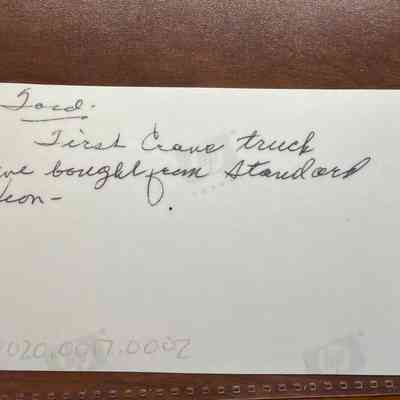 Ford.
First Crane truck
ve bought from Standard
ion -
020.0017.0002
hp
hp